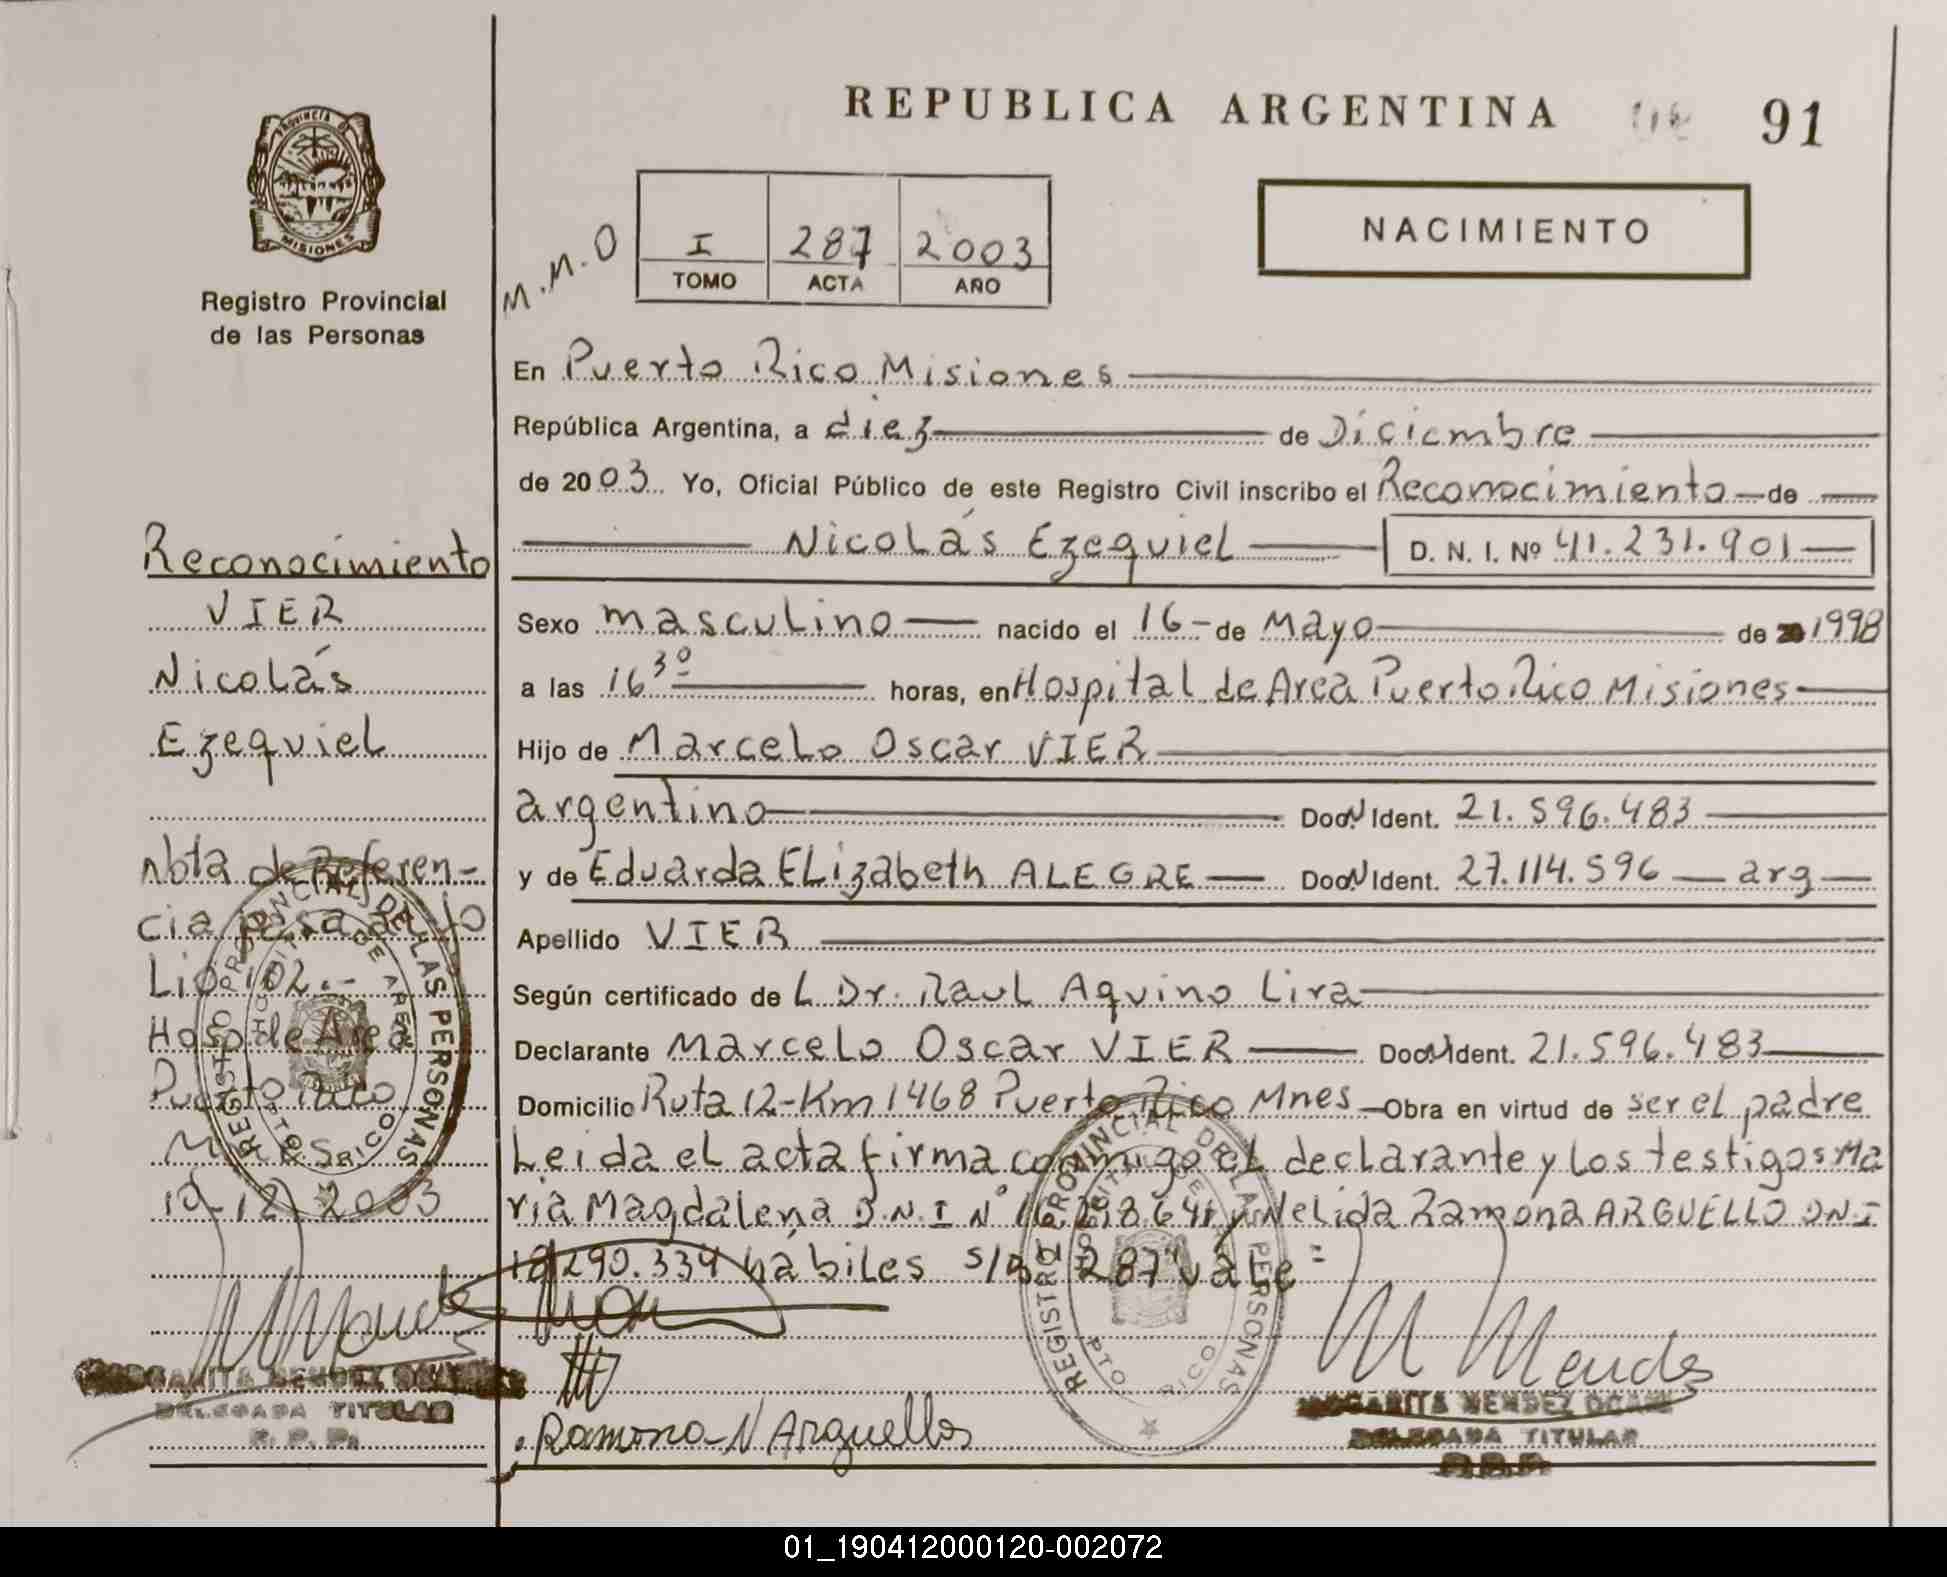 REPUBLICA ARGENTINA
91
PROVINCIA DE
MISIONES
Registro Provincial
de las Personas
M.M.O
I 287 2003
TOMO ACTA AÑO
NACIMIENTO
En Puerto Rico Misiones
República Argentina, a diez de Diciembre
de 2003 Yo, Oficial Público de este Registro Civil inscribo el Reconocimiento de
Nicolás Ezequiel D. N. I. Nº 41.231.901
Sexo masculino nacido el 16 de Mayo de 1998
a las 16 30 horas, en Hospital de Area Puerto Rico Misiones
Hijo de Marcelo Oscar VIER
argentino Doc.N Ident. 21.596.483
y de Eduarda ELizabeth ALEGRE Doc.N Ident. 27.114.596 arg
Apellido VIER
Según certificado de L Dr. Raul Aquino Lira
Declarante Marcelo Oscar VIER Doc.N Ident. 21.596.483
Domicilio Ruta 12-Km 1468 Puerto Rico Mnes Obra en virtud de ser el padre
Leida el acta firma conmigo el declarante y los testigos Ma
ria Magdalena D.N.I Nº y Nelida Ramona ARGUELLO DNI
290.334 hábiles s/r "287" vale=
Reconocimiento
VIER
Nicolás
Ezequiel
Nota de Referen-
cia pasa al fo
Lio 102.-
Hosp de Area
Puerto Rico
Mnes
10-12-2003
REGISTRO PROVINCIAL DE LAS PERSONAS
HOSPITAL DE AREA
PTO. RICO
MARGARITA MENDEZ OCAMPO
DELEGADA TITULAR
R. P. P.
Ramona N Arguello
REGISTRO PROVINCIAL DE LAS PERSONAS
HOSPITAL DE
PTO RICO
M Mendez
MARGARITA MENDEZ OCAMPO
DELEGADA TITULAR
R. P. P.
01_190412000120-002072